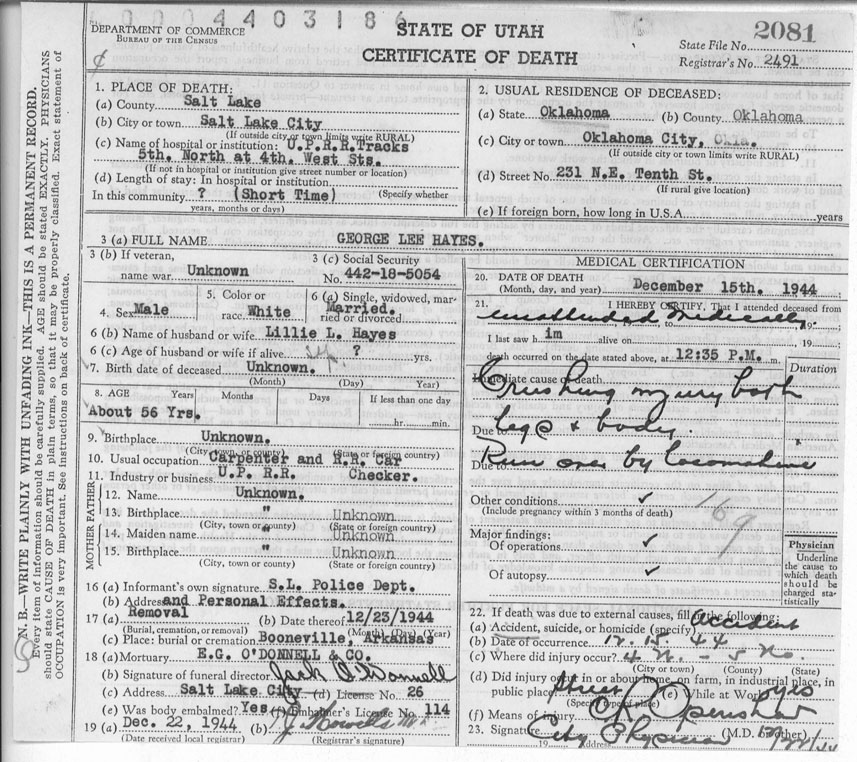 0004403186
DEPARTMENT OF COMMERCE
BUREAU OF THE CENSUS
STATE OF UTAH
CERTIFICATE OF DEATH
2081
State File No.
Registrar's No. 2491
N. B.—WRITE PLAINLY WITH UNFADING INK—THIS IS A PERMANENT RECORD.
Every item of information should be carefully supplied. AGE should be stated EXACTLY. PHYSICIANS
should state CAUSE OF DEATH in plain terms, so that it may be properly classified. Exact statement of
OCCUPATION is very important. See instructions on back of certificate.
1. PLACE OF DEATH:
(a) County Salt Lake
(b) City or town Salt Lake City
(If outside city or town limits write RURAL)
(c) Name of hospital or institution: U.P.R.R.Tracks
5th. North at 4th. West Sts.
(If not in hospital or institution give street number or location)
(d) Length of stay: In hospital or institution
In this community ? (Short Time) (Specify whether
years, months or days)
2. USUAL RESIDENCE OF DECEASED:
(a) State Oklahoma (b) County Oklahoma
(c) City or town Oklahoma City, Okla.
(If outside city or town limits write RURAL)
(d) Street No. 231 N.E. Tenth St.
(If rural give location)
(e) If foreign born, how long in U.S.A. years
3 (a) FULL NAME GEORGE LEE HAYES.
3 (b) If veteran,
name war Unknown
3 (c) Social Security
No. 442-18-5054
4. Sex Male
5. Color or
race White
6 (a) Single, widowed, mar-
ried or divorced Married.
6 (b) Name of husband or wife Lillie L. Hayes
6 (c) Age of husband or wife if alive ? yrs.
7. Birth date of deceased Unknown.
(Month) (Day) (Year)
8. AGE Years Months Days If less than one day
About 56 Yrs. hr. min.
9. Birthplace Unknown.
(City, town or county) (State or foreign country)
10. Usual occupation Carpenter and R.R. Car
11. Industry or business U.P. R.R. Checker.
FATHER
12. Name Unknown.
13. Birthplace " Unknown
(City, town or county) (State or foreign country)
MOTHER
14. Maiden name " Unknown
15. Birthplace " Unknown
(City, town or county) (State or foreign country)
16 (a) Informant's own signature S.L. Police Dept.
(b) Address and Personal Effects.
17 (a) Removal (b) Date thereof 12/23/1944
(Burial, cremation, or removal) (Month) (Day) (Year)
(c) Place: burial or cremation Booneville, Arkansas
18 (a) Mortuary E.G. O'DONNELL & CO.
(b) Signature of funeral director Jack O'Donnell
(c) Address Salt Lake City (d) License No. 26
(e) Was body embalmed? Yes (f) Embalmer's License No. 114
19 (a) Dec. 22, 1944 (b)
(Date received local registrar) (Registrar's signature)
MEDICAL CERTIFICATION
20. DATE OF DEATH
(Month, day, and year) December 15th. 1944
21. I HEREBY CERTIFY, That I attended deceased from
unattended Medically
, 19 , to , 19
I last saw h im alive on , 19
death occurred on the date stated above, at 12:35 P.M. m.
Duration
Immediate cause of death
Crushing injury both
Due to legs & body.
Due to Run over by locomotive
Other conditions ✓
(Include pregnancy within 3 months of death)
169
Major findings:
Of operations ✓
Of autopsy ✓
Physician
Underline
the cause to
which death
should be
charged sta-
tistically
22. If death was due to external causes, fill in the following:
(a) Accident, suicide, or homicide (specify) Accident
(b) Date of occurrence 12. 15. 44
(c) Where did injury occur? 4 W. - 5 No.
(City or town) (County) (State)
(d) Did injury occur in or about home, on farm, in industrial place, in
public place? Street (e) While at Work? yes
(Specify type of place)
(f) Means of injury
23. Signature (M.D. or other)
City Physician
19 Address